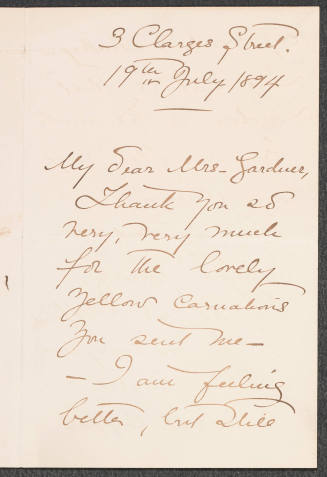 3 Clarges Street.
19th July 1894
My dear Mrs- Gardner,
Thank you so
very, very much
for the lovely
yellow carnations
you sent me -
- I am feeling
better, but still